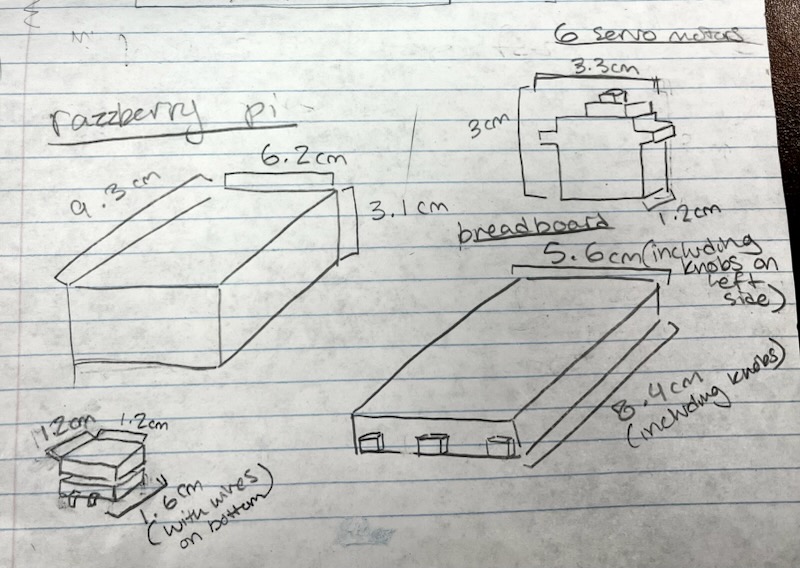 6 servo motors
3.3cm
3cm
1.2cm
razzberry pi
9.3cm
6.2cm
3.1cm
breadboard
5.6cm (including
knobs on
left
side)
8.4cm
(including knobs)
1.2cm
1.2cm
1.6cm
(with wires)
on bottom